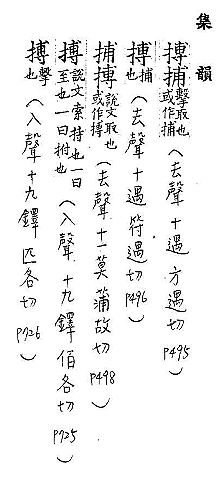 集韻
搏捕擊取也或作捕(去聲十遇方遇切P495)
搏捕也(去聲十遇符遇切P496)
捕搏說文取也或作搏(去聲十一莫蒲故切P498)
搏說文索持也一曰至也一曰拊也(入聲十九鐸伯各切P725)
搏擊也(入聲十九鐸匹各切P726)